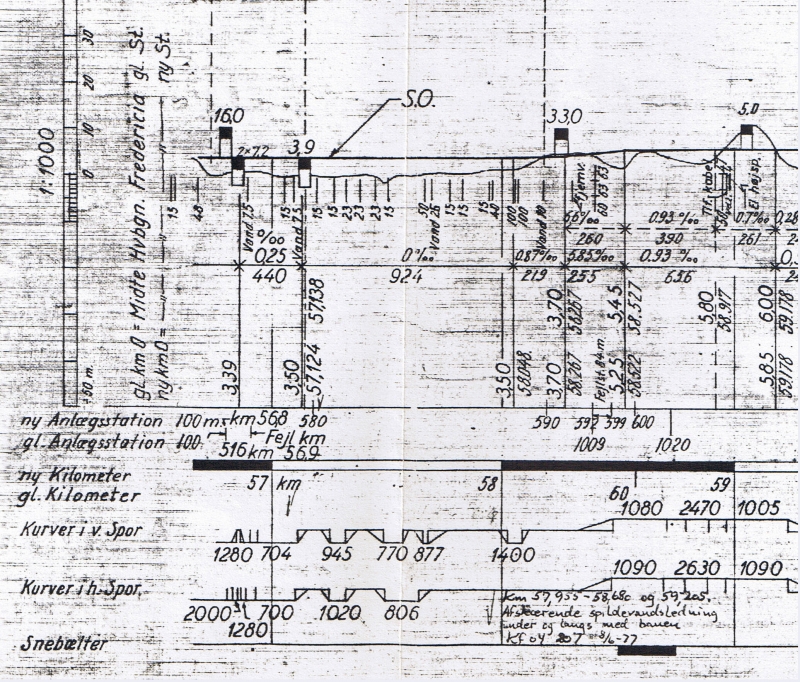 30
20
10
0
1:1000
50 m.
gl. km 0 = Midte Hvbgn. Fredericia gl. St.
ny km 0 = — " — " — " — ny St.
16,0
2×7,2
3,9
S.O.
33,0
5,0
15
48
Vand 7,5
15
Vand 7,5
15
15
23
23
23
15
50
Vand 26
15
15
15
40
100
100
Vand 10
Fjernv.
60 63 63
Tlf. kabel
El højsp.
‰
0,25
440
0 ‰
924
0,87‰
219
5,85‰
255
0.93 ‰
656
66‰
260
0.93 ‰
390
0.7‰
261
0,28
3,39
3,50
57,124
57,138
3,50
58,048
3,70
58,267
3,70
58,267
Fejl st. 84 m.
5,25
58,522
5,45
58,527
5,80
58,917
5,85
59,178
6,00
59,178
ny Anlægsstation 100 m. km 56,8 580 590 592 599 600
gl. Anlægsstation 100 Fejl km 1009 1020
516 km 56,9
ny Kilometer 57 km 58 59
gl. Kilometer 60
1080 2470 1005
Kurver i v. Spor
1280 704 945 770 877 1400
1090 2630 1090
Kurver i h. Spor.
2000 700 1020 806
1280
Km 57,955 - 58,680 og 59,205.
Afskærende spildevandsledning
under og langs med banen
Kf 04 207 8/6-77
Snebælter